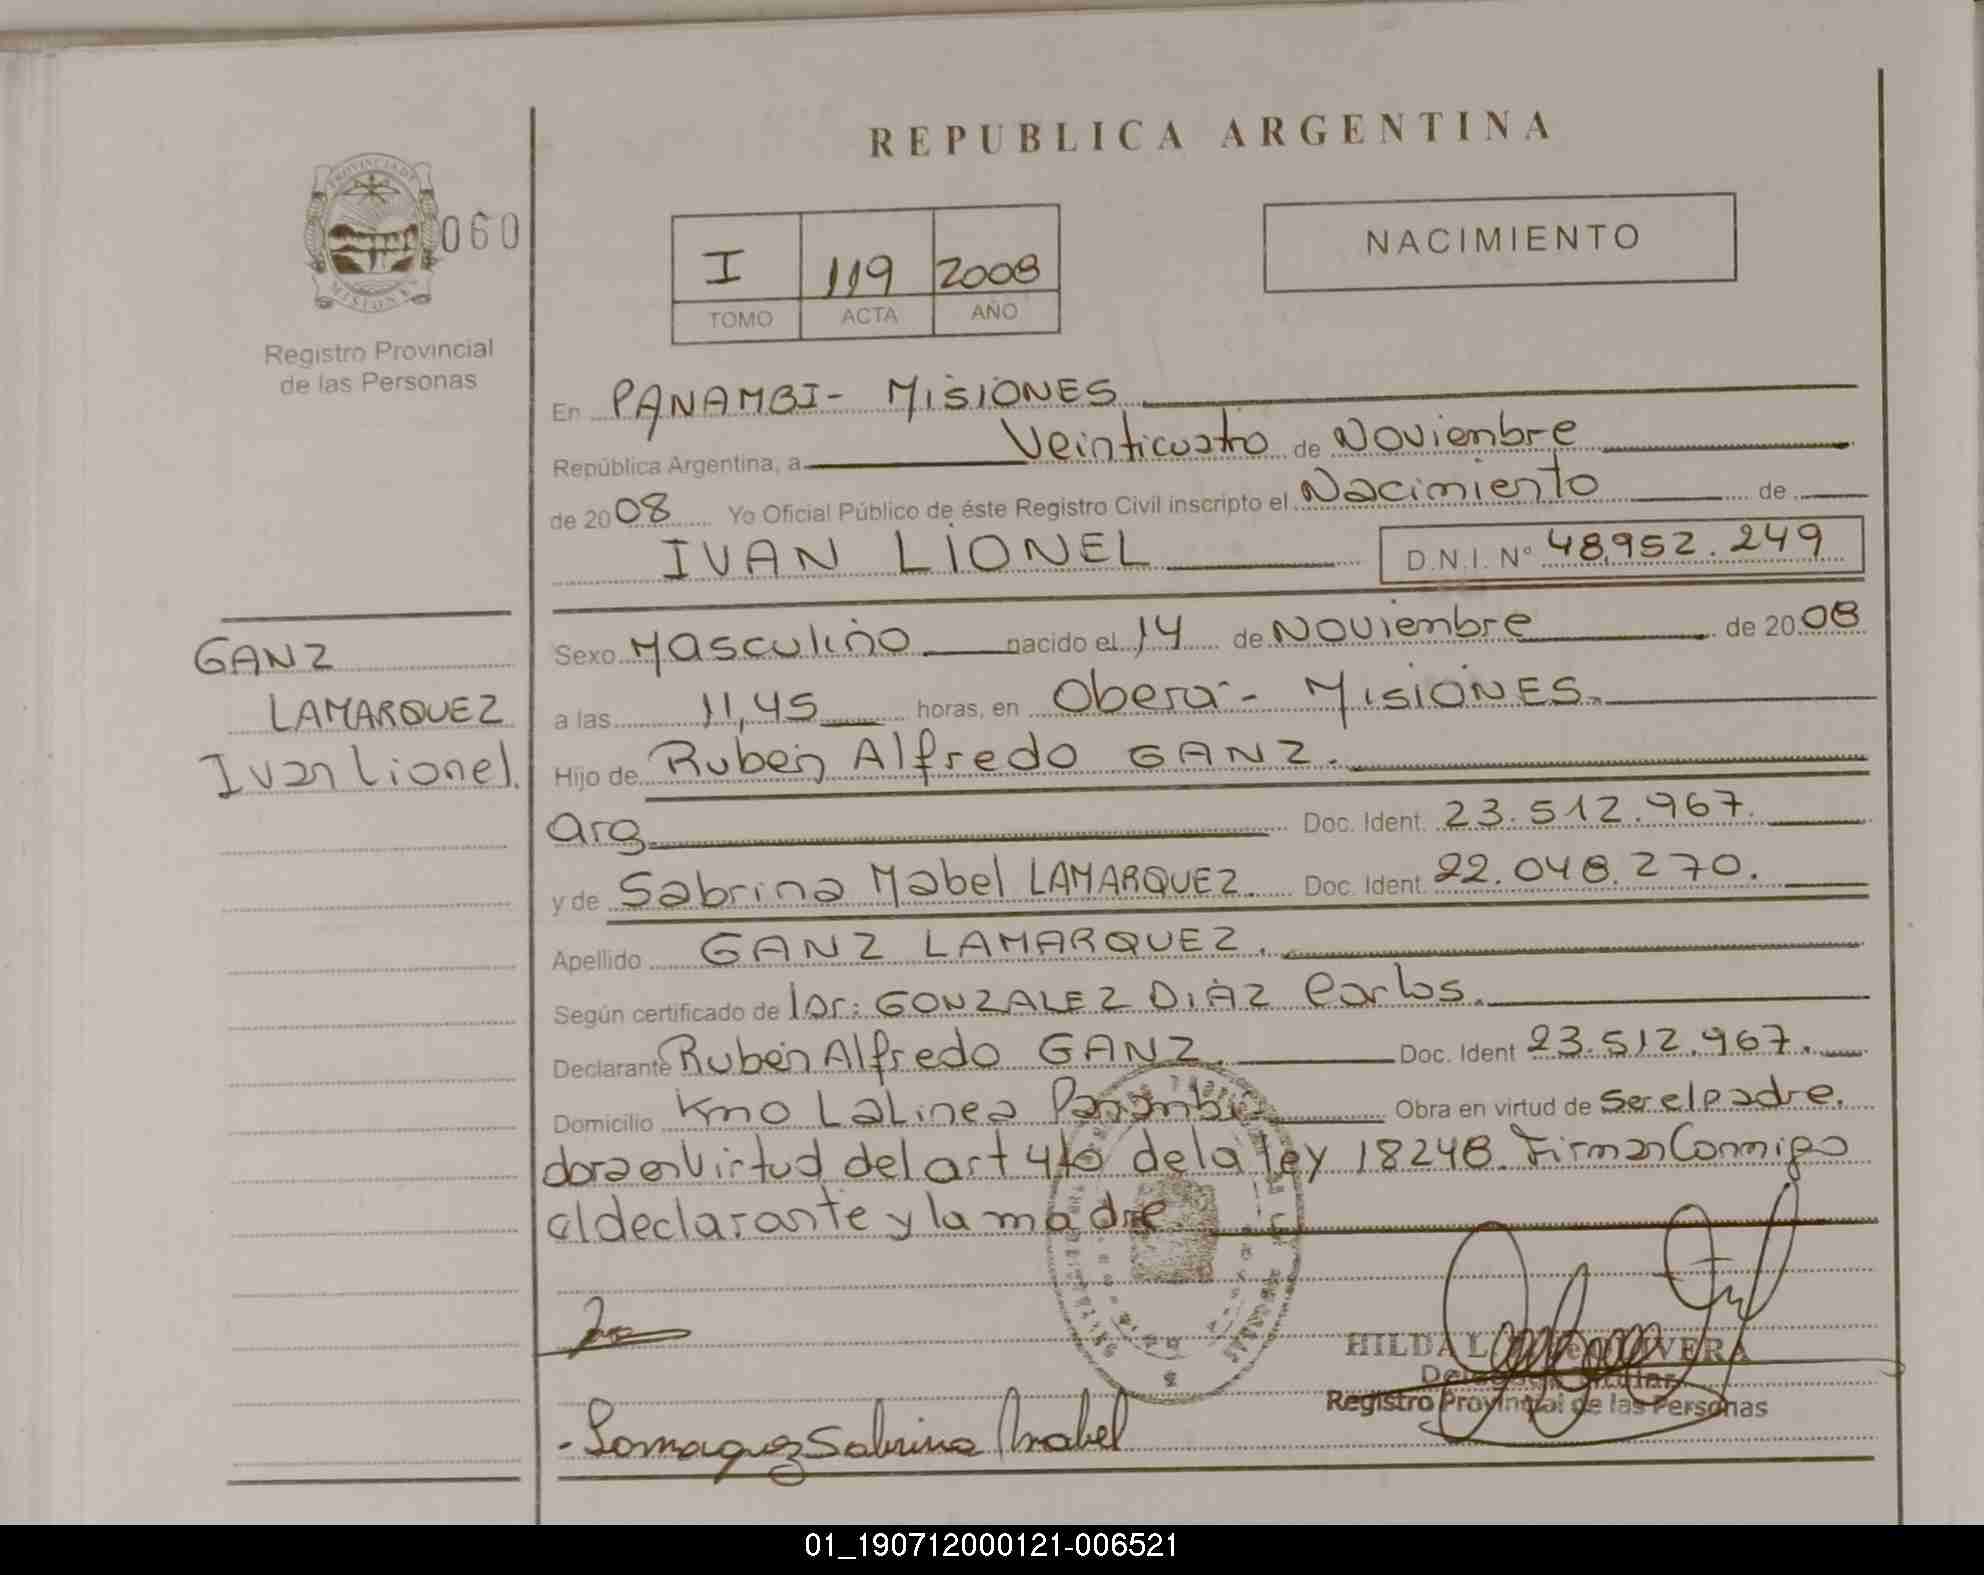 REPUBLICA ARGENTINA
PROVINCIA DE
MISIONES
060
Registro Provincial
de las Personas
I 119 2008
TOMO ACTA AÑO
NACIMIENTO
En PANAMBI - MISIONES
República Argentina, a Veinticuatro de Noviembre
de 2008 Yo Oficial Público de éste Registro Civil inscripto el Nacimiento de
IVAN LIONEL D.N.I. Nº 48.952.249
GANZ
LAMARQUEZ
Ivan Lionel.
Sexo Masculino nacido el 14 de Noviembre de 2008
a las 11,45 horas, en Oberá - MISIONES.
Hijo de Rubén Alfredo GANZ.
arg Doc. Ident. 23.512.967.
y de Sabrina Mabel LAMARQUEZ. Doc. Ident. 22.048.270.
Apellido GANZ LAMARQUEZ.
Según certificado de Dr: GONZALEZ DIAZ Carlos.
Declarante Rubén Alfredo GANZ. Doc. Ident 23.512.967.
Domicilio Kmo La Linea Panambi Obra en virtud de ser el padre.
en Virtud del art 4to de la ley 18248. Firman Conmigo
el declarante y la madre
HILDA OLIVERA
Delegada Titular
Registro Provincial de las Personas
- Lamarquez Sabrina Mabel
01_190712000121-006521